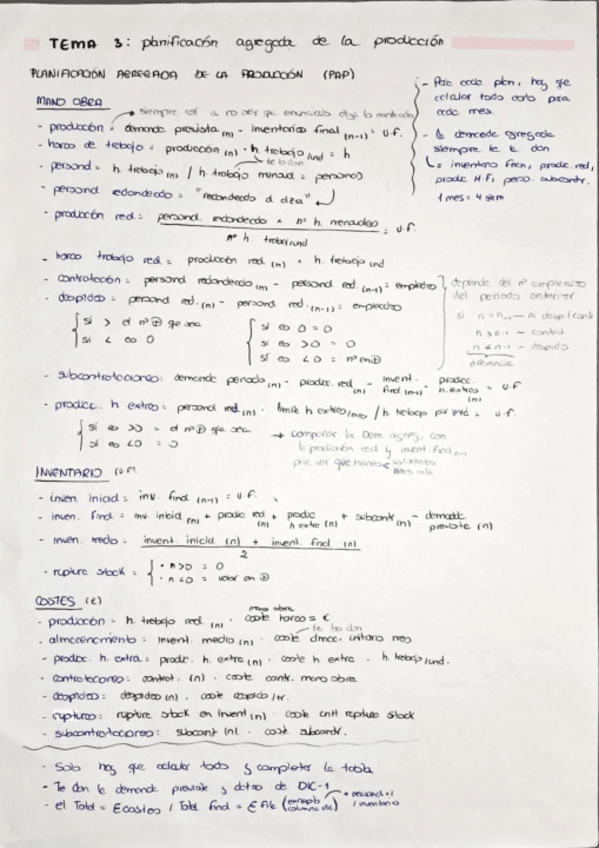 TEMA 3: planificación agregada de la producción
PLANIFICACIÓN AGREGADA DE LA PRODUCCIÓN (PAP)
- Para cada plan, hay que
calcular todo esto para
cada mes.
- La demanda agregada
siempre te la dan
↳ = inventario final, produc. red,
produc H.F, perso. subcontr.
1 mes = 4 sem
MANO OBRA
→ siempre así a no ser que enunciado diga lo contrario
- producción = demanda prevista (n) - inventario final (n-1) = u.f.
- horas de trabajo = producción (n) · h. trabajo/und = h
- personal = h. trabajo (n) / h. trabajo mensual = personas
te lo dan
- personal redondeado = "redondeado al alza"
- producción red = personal redondeado × nº h. mensuales / nº h. trabaj/und = u.f
- horas trabajo red = producción red (n) × h. trabajo und
- contratación = personal redondeado (n) - personal red. (n-1) = empleados
- despidos = personal red. (n) - personal red. (n-1) = empleados
depende del nº empleados
del periodo anterior
si n = n-1 — ni desp/cont
n > n-1 - contrat
n < n-1 - despido
diferencia
si > el nº ⊕ que sea
si < es 0
si es 0 = 0
si es >0 = 0
si es <0 = nº en ⊕
- subcontrataciones: demanda periodo (n) - produc. red (n) - invent. final (n-1) - producc. h.extras (n) = u.f
- produc. h extras = personal red (n) · límite h extras/mes / h trabajo por und = u.f.
si es >0 = el nº ⊕ que sea
si es <0 = 0
→ comparar la Dem. agreg. con
la producción red y invent. final n-1
para ver que
INVENTARIO (u.f.)
- inven. inicial = inv. final (n-1) = u.f.
- inven. final = inv. inicial (n) + produc red (n) + produc h extra (n) + subcontr (n) - demanda prevista (n)
- inven. medio = invent. inicial (n) + invent. final (n) / 2
- ruptura stock = · n>0 = 0
· n<0 = valor en ⊕
COSTES (€)
- producción = h. trabajo red (n) · coste horas = €
mano obra
te lo dan
- almacenamiento = invent. medio (n) · coste almac. unitario mes
- produc. h. extra = produc. h. extra (n) · coste h extra · h. trabajo/und.
- contrataciones = contrat. (n) · coste contr. mano obra
- despidos = despidos (n) · coste despido /tr.
- rupturas = ruptura stock en invent (n) · coste unit ruptura stock
- subcontrataciones = subcont (n) · coste subcontr.
- Solo hay que calcular todo y completar la tabla
- Te dan la demanda prevista y datos de DIC-1
- el Total = Σ costes / Total final = Σ fila (excepto columna dic) + personal +1 / inventario